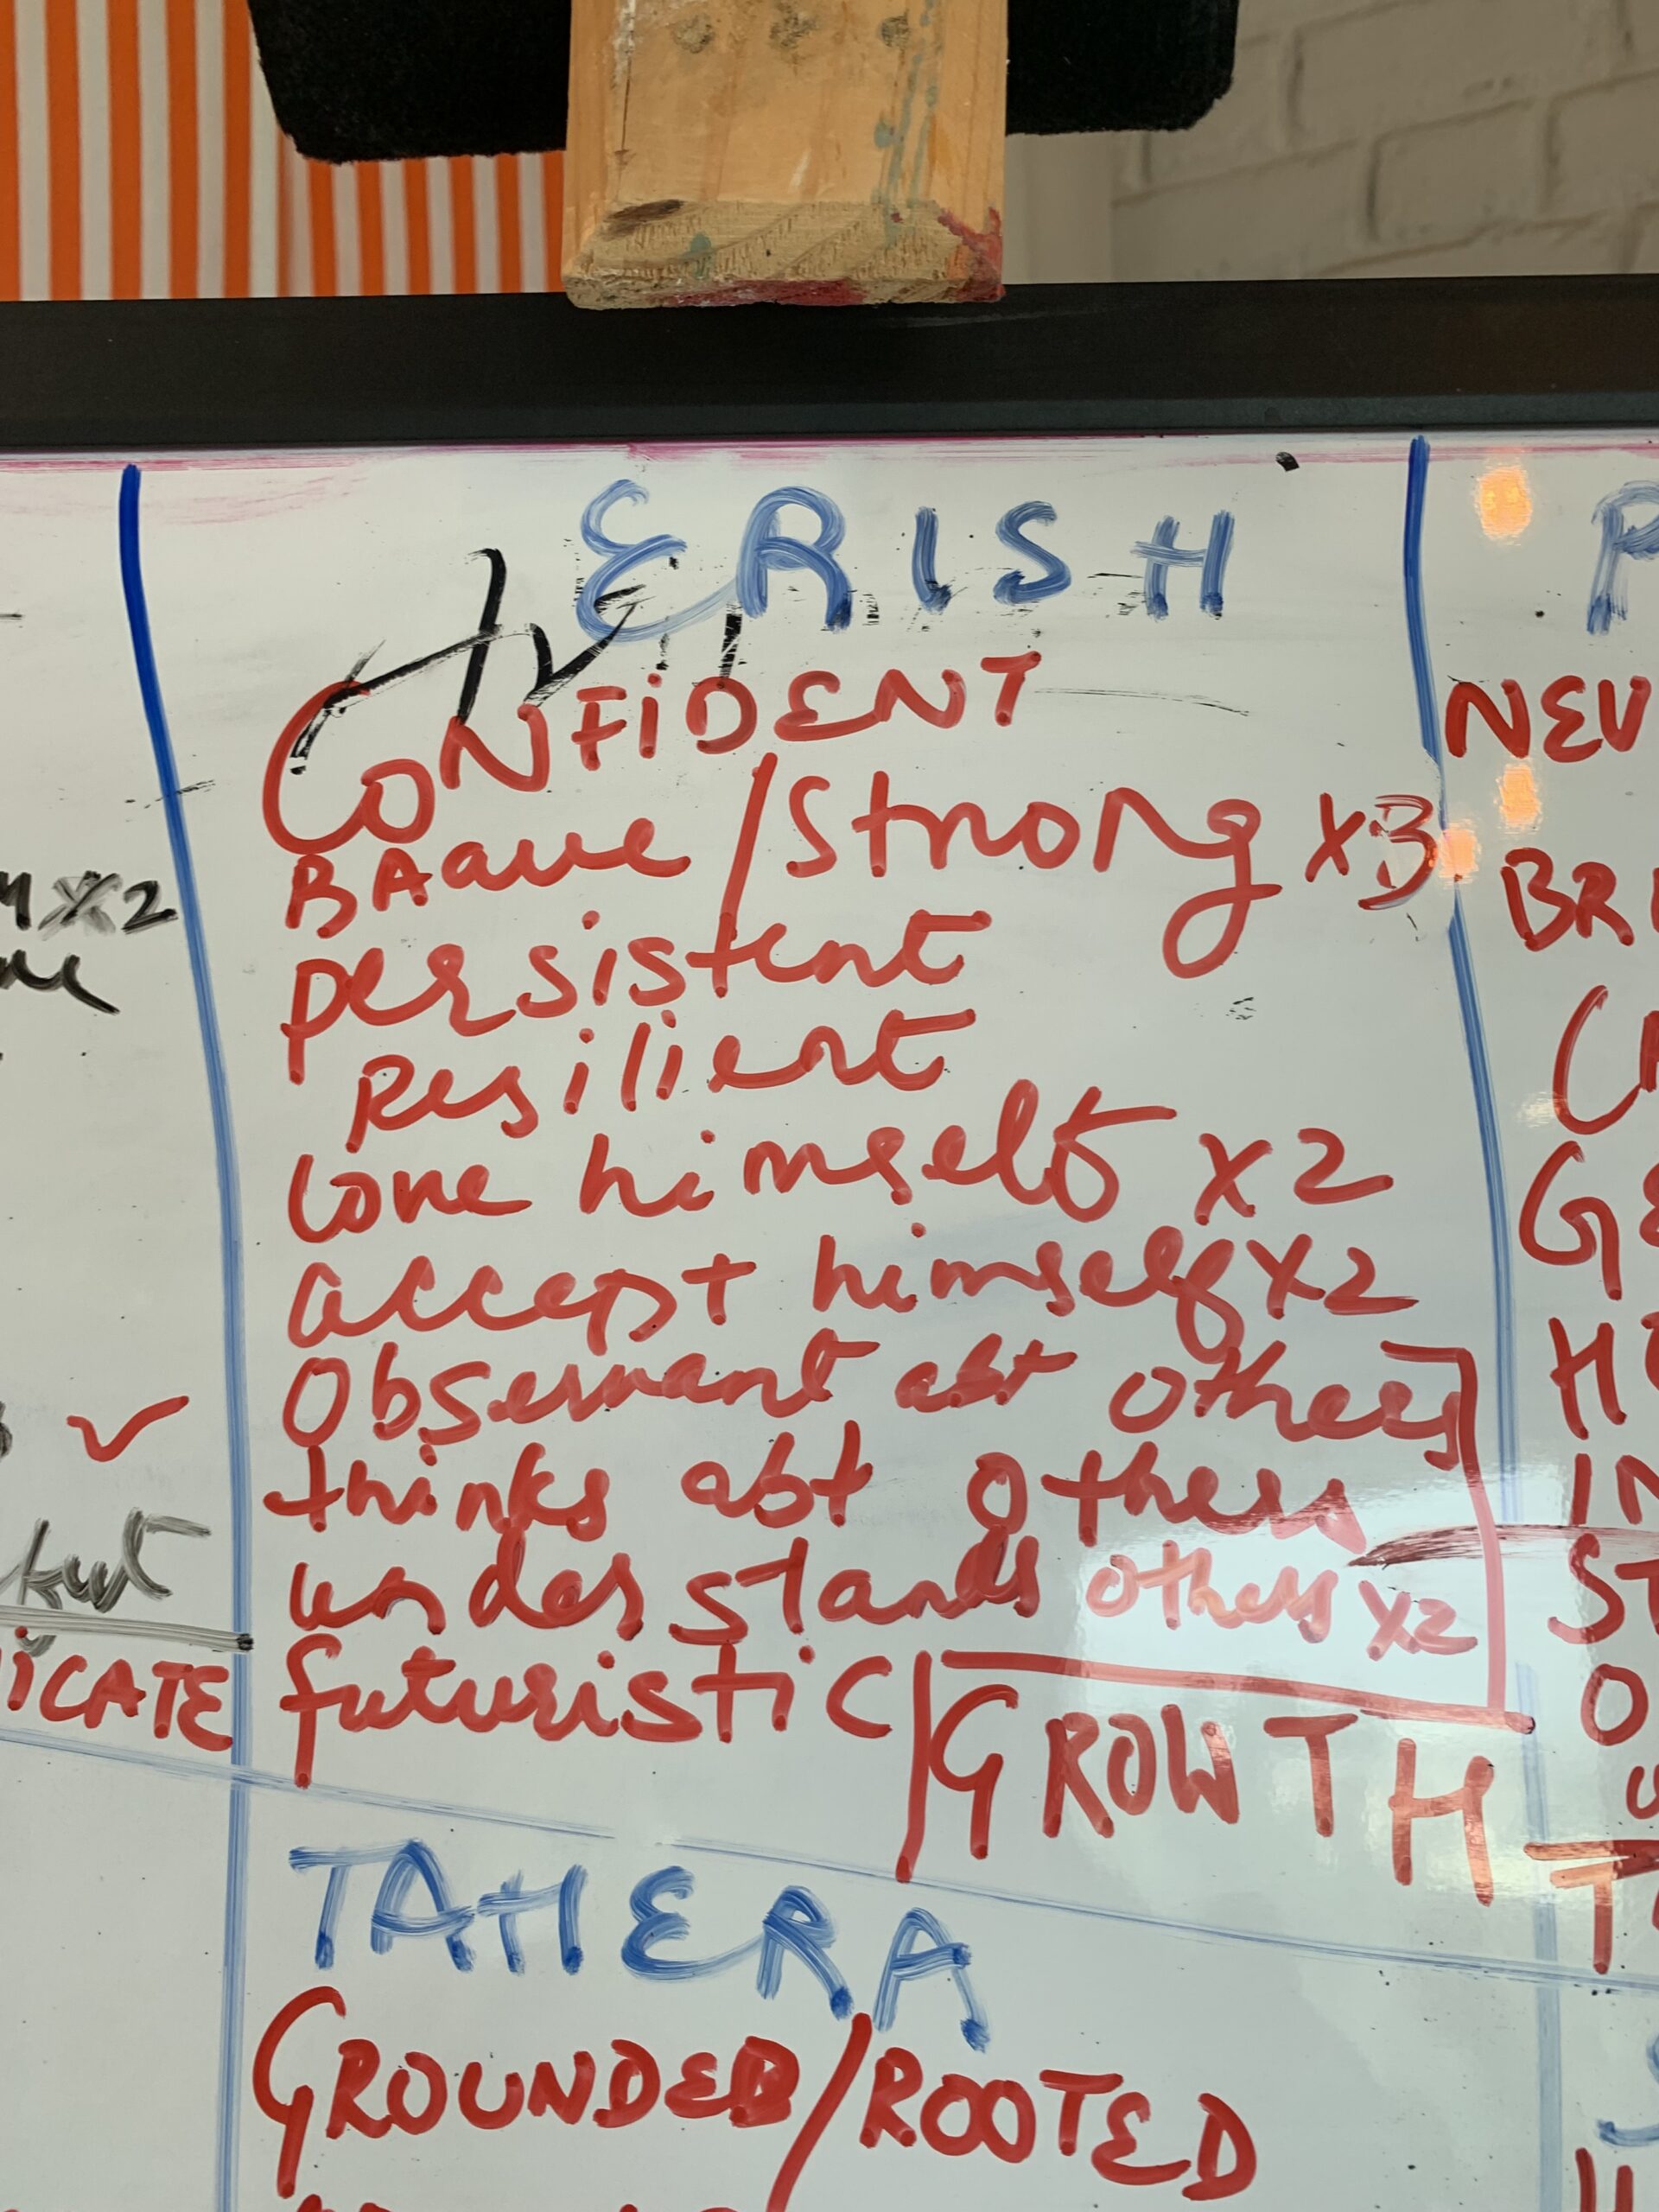 ERISH
CONFIDENT
BRave/Strong x3
persistent
Resilient
love himself x2
accept himself x2
Observant abt others
thinks abt others
understands others x2
futuristic/GROWTH
TAHERA
GROUNDED/ROOTED
x2
ICATE
NEV
BR
GE
ST